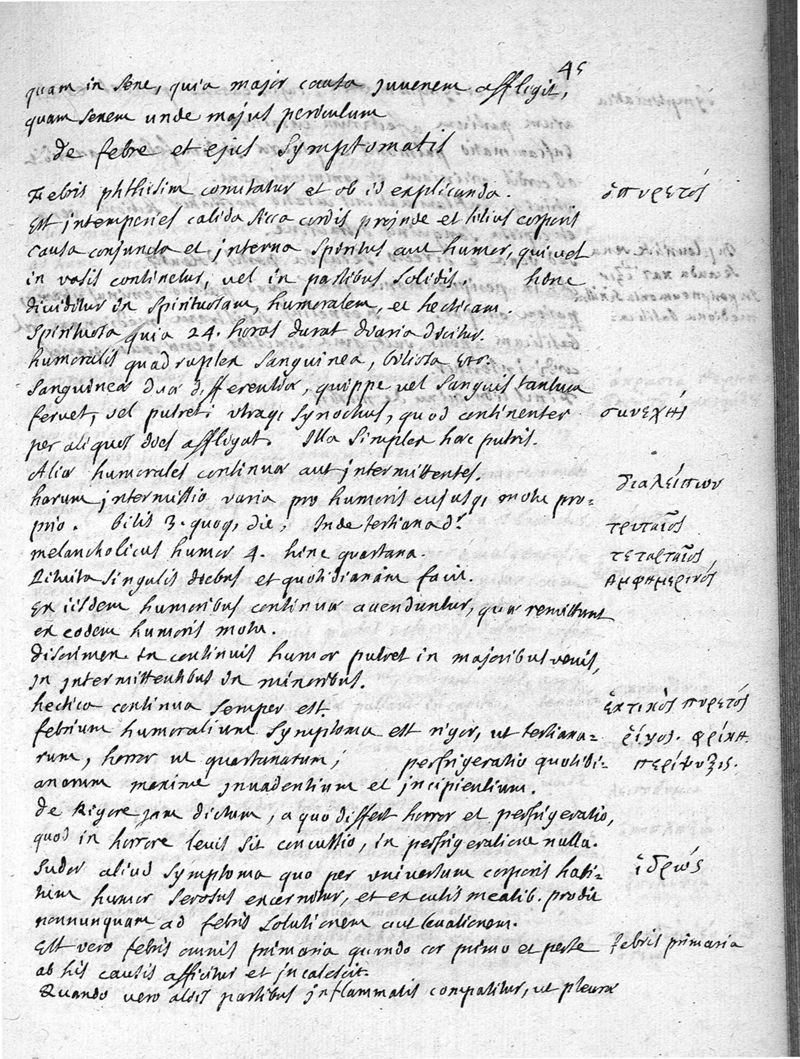 45
quam in sene, quia major causa juvenem affligit,
quam senem unde majus periculum
de febre et ejus symptomatis
Febris phthisim comitatur et ob id explicanda. ὁ πυρετός
Est intemperies calida sicca cordis proinde et totius corporis
causa conjuncta et interna spiritus aut humor, qui vel
in vasis continetur, vel in partibus solidis. hinc
dividitur in spirituosam, humoralem, et hecticam.
Spirituosa quia 24. horas durat diaria dicitur.
humoralis quadruplex sanguinea, biliosa etc.
Sanguineæ duæ differentiæ, quippe vel sanguis tantum
fervet, vel putret: utraq; synochus, quod continenter συνεχής
per aliquot dies affligat. Illa simplex hæc putris.
Aliæ humorales continuæ aut intermittentes. διαλείπων
harum intermissio varia pro humoris cujusq; motu pro-
prio. bilis 3. quoq; die, Inde tertiana dr. τριταῖος
melancholicus humor 4. hinc quartana. τεταρταῖος
Pituita singulis diebus et quotidianam facit. ἀμφημερινός
Ex iisdem humoribus continuæ accenduntur, quæ remittunt
ex eodem humoris motu.
discrimen. In continuis humor putret in majoribus venis,
in intermittentibus in minoribus.
hectica continua semper est. ἑκτικὸς πυρετός
febrium humoralium symptoma est rigor, ut tertiana- ῥῖγος. φρίκη.
rum, horror ut quartanarum; perfrigeratio quotidi- περίψυξις.
anarum maxime invadentium et incipientium.
De Rigore jam dictum, a quo differt horror et perfrigeratio,
quod in horrore levis sit concussio, in perfrigeratione nulla.
Sudor aliud symptoma quo per universum corporis habi- ἱδρώς
tum humor serosus excernitur, et ex cutis meatib. prodit
nonnunquam ad febris solutionem aut levationem.
Est vero febris omnis primaria quando cor primo et per se febris primaria
ab his causis afficitur et incalescit.
Quando vero aliis partibus inflammatis compatitur, ut pleura